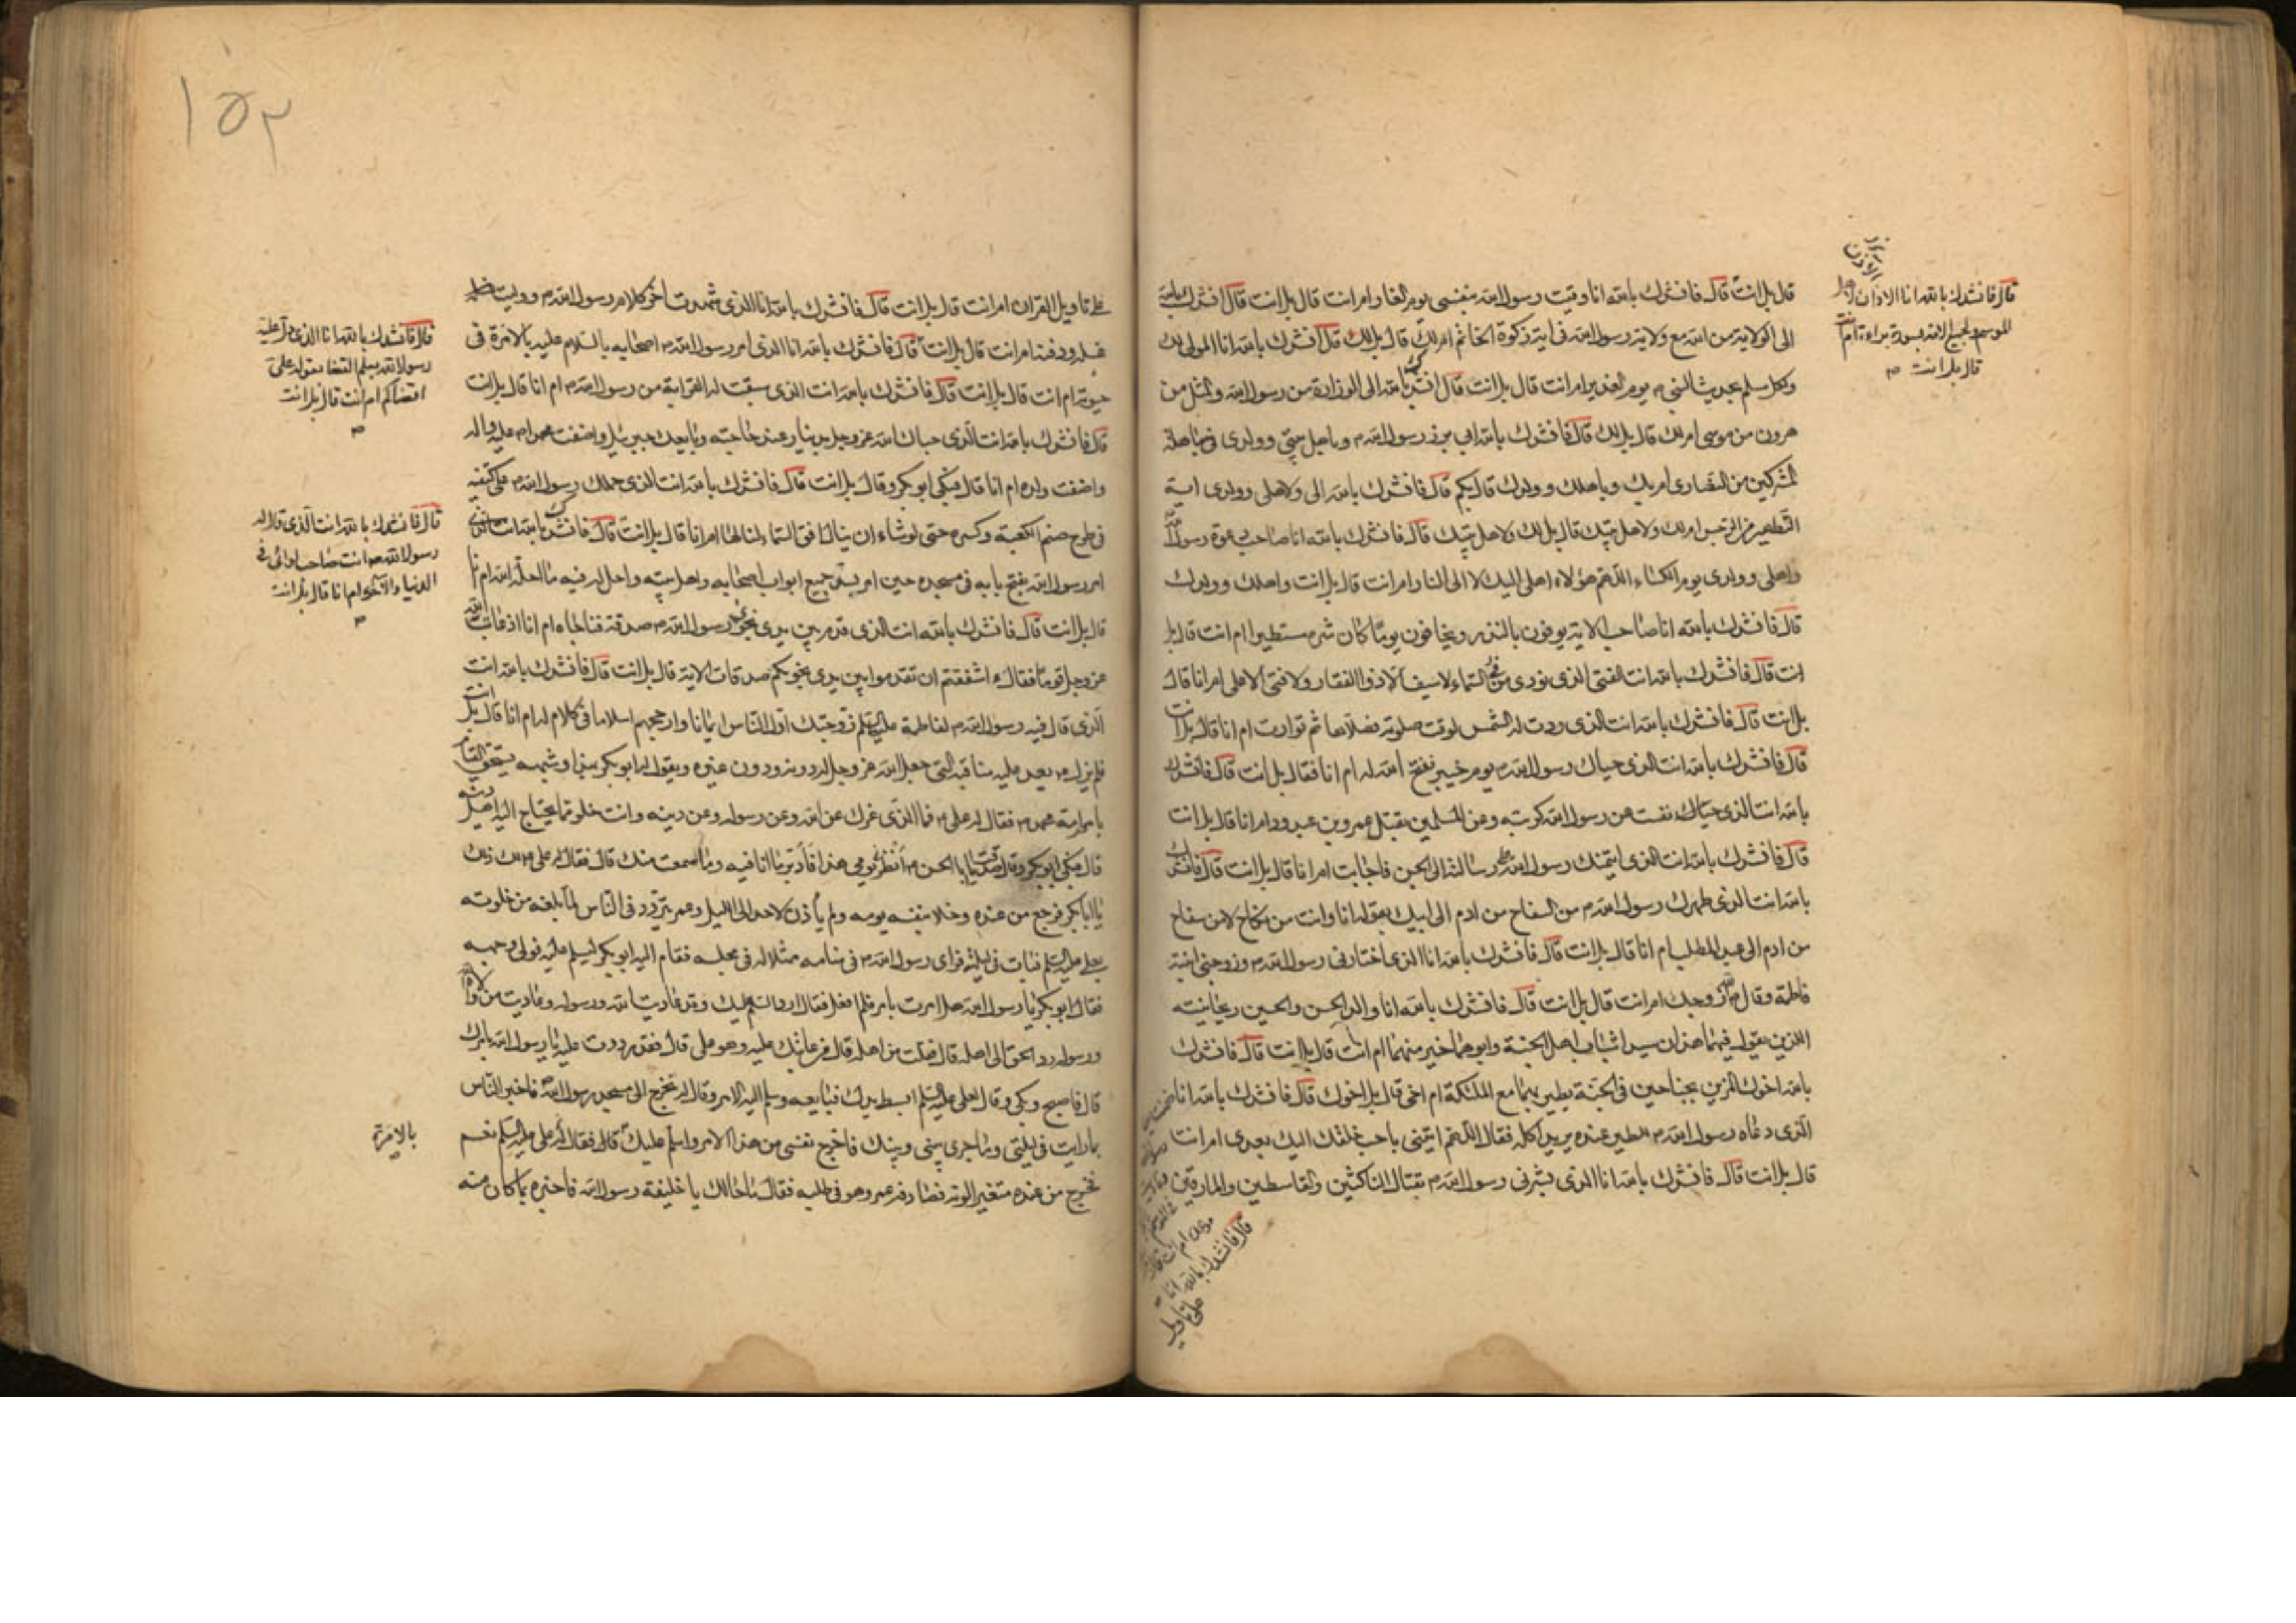 قال بل انت قال فانشدك بالله انا وقيت رسول الله بنفسى يوم الغار ام انت قال بل انت قال انشدك بالله
الى الولاية من الله مع ولاية رسول الله فى اية زكوة الخاتم ام لك قال بل لك قال انشدك بالله انا المولى لك
ولكل مسلم بحديث النبى ص يوم الغدير ام انت قال بل انت قال انشدك بالله الى الوزارة من رسول الله والمثل من
هرون من موسى ام لك قال بل لك قال فانشدك بالله ابى برز رسول الله ص وباهل بيتى وولدى فى مباهلة
المشركين من النصارى ام بك وباهلك وولدك قال بكم قال فانشدك بالله الى ولاهلى وولدى اية
التطهير من الرجس ام لك ولاهل بيتك قال بل لك ولاهل بيتك قال فانشدك بالله انا صاحب دعوة رسول الله
واهلى وولدى يوم الكساء اللهم هؤلاء اهلى اليك لا الى النار ام انت قال بل انت واهلك وولدك
قال فانشدك بالله انا صاحب الاية يوفون بالنذر ويخافون يوما كان شره مستطيرا ام انت قال بل
انت قال فانشدك بالله انت الفتى الذى نودى من السماء لا سيف الا ذو الفقار ولا فتى الا على ام انا قال
بل انت قال فانشدك بالله انت الذى ردت له الشمس لوقت صلوته فصلاها ثم توارت ام انا قال بل انت
قال فانشدك بالله انت الذى حباك رسول الله ص يوم خيبر ففتح الله له ام انا فقال بل انت قال فانشدك
بالله انت الذى نفست عن رسول الله كربته وعن المسلمين بقتل عمرو بن عبد ود ام انا قال بل انت
قال فانشدك بالله انت الذى ائتمنك رسول الله على رسالته الى الجن فاجابت ام انا قال بل انت قال فانشدك
بالله انت الذى طهرك رسول الله ص من السفاح من ادم الى ابيك بقوله انا وانت من نكاح لا من سفاح
من ادم الى عبد المطلب ام انا قال بل انت قال فانشدك بالله انا الذى اختارنى رسول الله ص وزوجنى ابنته
فاطمة وقال الله زوجك ام انت قال بل انت قال فانشدك بالله انا والد الحسن والحسين ريحانيته
الذين يقول فيهما هذان سيدا شباب اهل الجنة وابوهما خير منهما ام انت قال بل انت قال فانشدك
بالله اخوك المزين بجناحين فى الجنة يطير بهما مع الملئكة ام اخى قال بل اخوك قال فانشدك بالله انا
الذى دعاه رسول الله ص لطير عنده يريد اكله فقال اللهم ايتنى باحب خلقك اليك بعدى ام انت
قال بل انت قال فانشدك بالله انا الذى بشرنى رسول الله ص بقتال الناكثين والقاسطين والمارقين
على تاويل
قال فانشدك بالله انا الاذان
الموسم ولجميع الامة بسورة براءة ام انت
قال بل انت
قال فانشدك بالله انا
١٥٢
على تاويل القران ام انت قال بل انت قال فانشدك بالله انا الذى شهدت اخر كلام رسول الله ص ووليت
غسله ودفنه ام انت قال بل انت قال فانشدك بالله انا الذى امر رسول الله ص اصحابه بالسلام عليه بالامرة فى
حيوته ام انت قال بل انت قال فانشدك بالله انت الذى سبقت له القرابة من رسول الله ص ام انا قال بل انت
قال فانشدك بالله انت الذى حباك الله عز وجل بدينار عند حاجته وبايعك جبرئيل واضفت محمدا صلى الله عليه واله
واضفت ولده ام انا قال فبكى ابو بكر وقال بل انت قال فانشدك بالله انت الذى حملك رسول الله ص على كتفيه
فى طرح صنم الكعبة وكسره حتى لو شاء ان ينال افق السماء لنالها ام انا قال بل انت قال فانشدك بالله انت الذى
امر رسول الله بفتح بابه فى مسجده حين امر بسد جميع ابواب اصحابه واهل بيته واحل له فيه ما احله الله ام انا
قال بل انت قال فانشدك بالله انت الذى قدم بين يدى نجوى رسول الله ص صدقة فناجاه ام انا اذ عاتب الله
عز وجل قوما فقال ءاشفقتم ان تقدموا بين يدى نجويكم صدقات الاية قال بل انت قال فانشدك بالله انت
الذى قال فيه رسول الله ص لفاطمة عليها السلم زوجتك اول الناس ايمانا وارجحهم اسلاما فى كلام له ام انا قال بل انت
فلم يزل ص يعد عليه مناقبه التى جعل الله عز وجل له دونه ودون غيره ويقول له ابو بكر بهذا وشبهه يستحق القيام
بامور امة محمد ص فقال له على ص فما الذى غرك عن الله وعن رسوله وعن دينه وانت خلو مما يحتاج اليه اهل دينه
قال فبكى ابو بكر وقال صدقت يا ابا الحسن انظرنى يومى هذا فادبر ما انا فيه وما سمعت منك قال فقال له على ص لك ذلك
يا ابا بكر فرجع من عنده وخلا بنفسه يومه ولم يأذن لاحد الى الليل وعمر يتردد فى الناس لما بلغه من خلوته
بعلى عليه السلم فبات فى ليلته فراى رسول الله ص فى منامه ممثلا له فى مجلسه فقام اليه ابو بكر ليسلم عليه فولى وجهه
فقال ابو بكر يا رسول الله هل امرت بامر فلم افعل فقال ارد السلم عليك وقد عاديت الله ورسوله وعاديت من والاه الله
ورسوله رد الحق الى اهله قال فقلت من اهله قال من عاتبك عليه وهو على قال فقد رددت عليه يا رسول الله بامرك
قال فاصبح وبكى وقال لعلى عليه السلم ابسط يدك فبايعه وسلم اليه الامر وقال له تخرج الى مسجد رسول الله فاخبر الناس
بما رايت فى ليلتى وما جرى بينى وبينك فاخرج نفسى من هذا الامر واسلم عليك قال فقال له على عليه السلم نعم
فخرج من عنده متغيرا لونه فصادفه عمر وهو فى طلبه فقال ما حالك يا خليفة رسول الله فاخبره بما كان منه
قال فانشدك بالله انا الذى دل عليه
رسول الله بعلم القضا بقوله على
اقضاكم ام انت قال بل انت
قال فانشدك بالله انت الذى قال له
رسول الله ص انت صاحب لوائى فى
الدنيا والاخرة ام انا قال بل انت
بالامرة